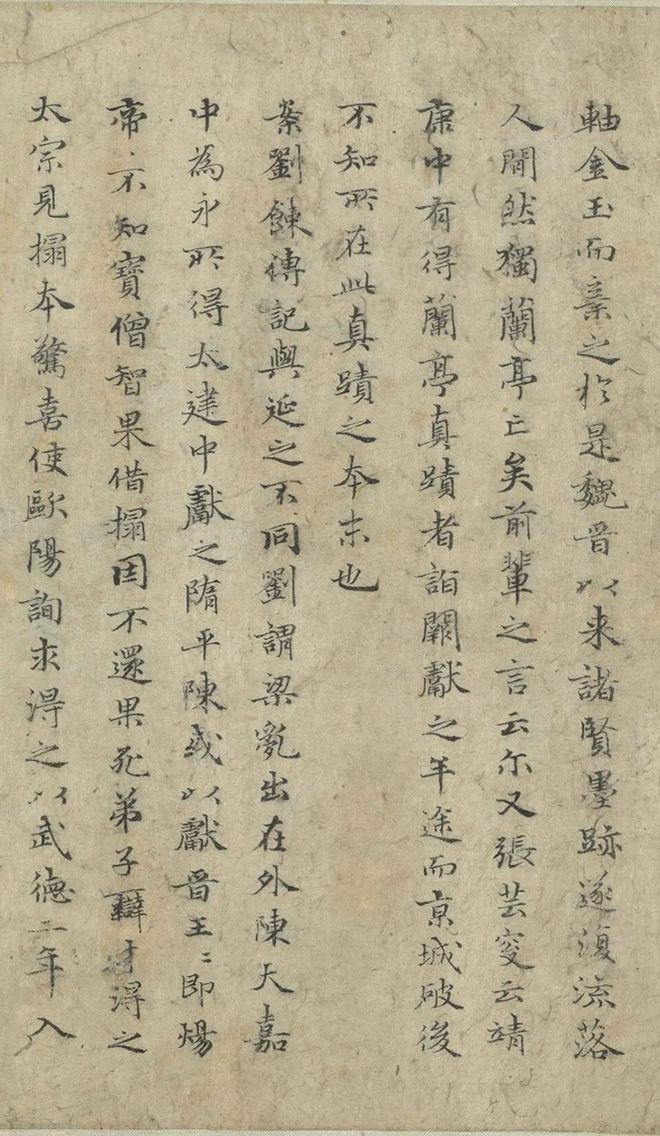 軸金玉而棄之於是魏晉以来諸賢墨跡遂復流落
人間然獨蘭亭亡矣前輩之言云尔又張芸叟云靖
康中有得蘭亭真蹟者詣闕獻之半途而京城破後
不知所在此真蹟之本末也
案劉餗傳記與延之不同劉謂梁亂出在外陳天嘉
中為永所得太建中獻之隋平陳或以獻晉王〻即煬
帝帝不知寶僧智果借搨因不還果死弟子辯才得之
太宗見搨本驚喜使歐陽詢求得之以武德二年入